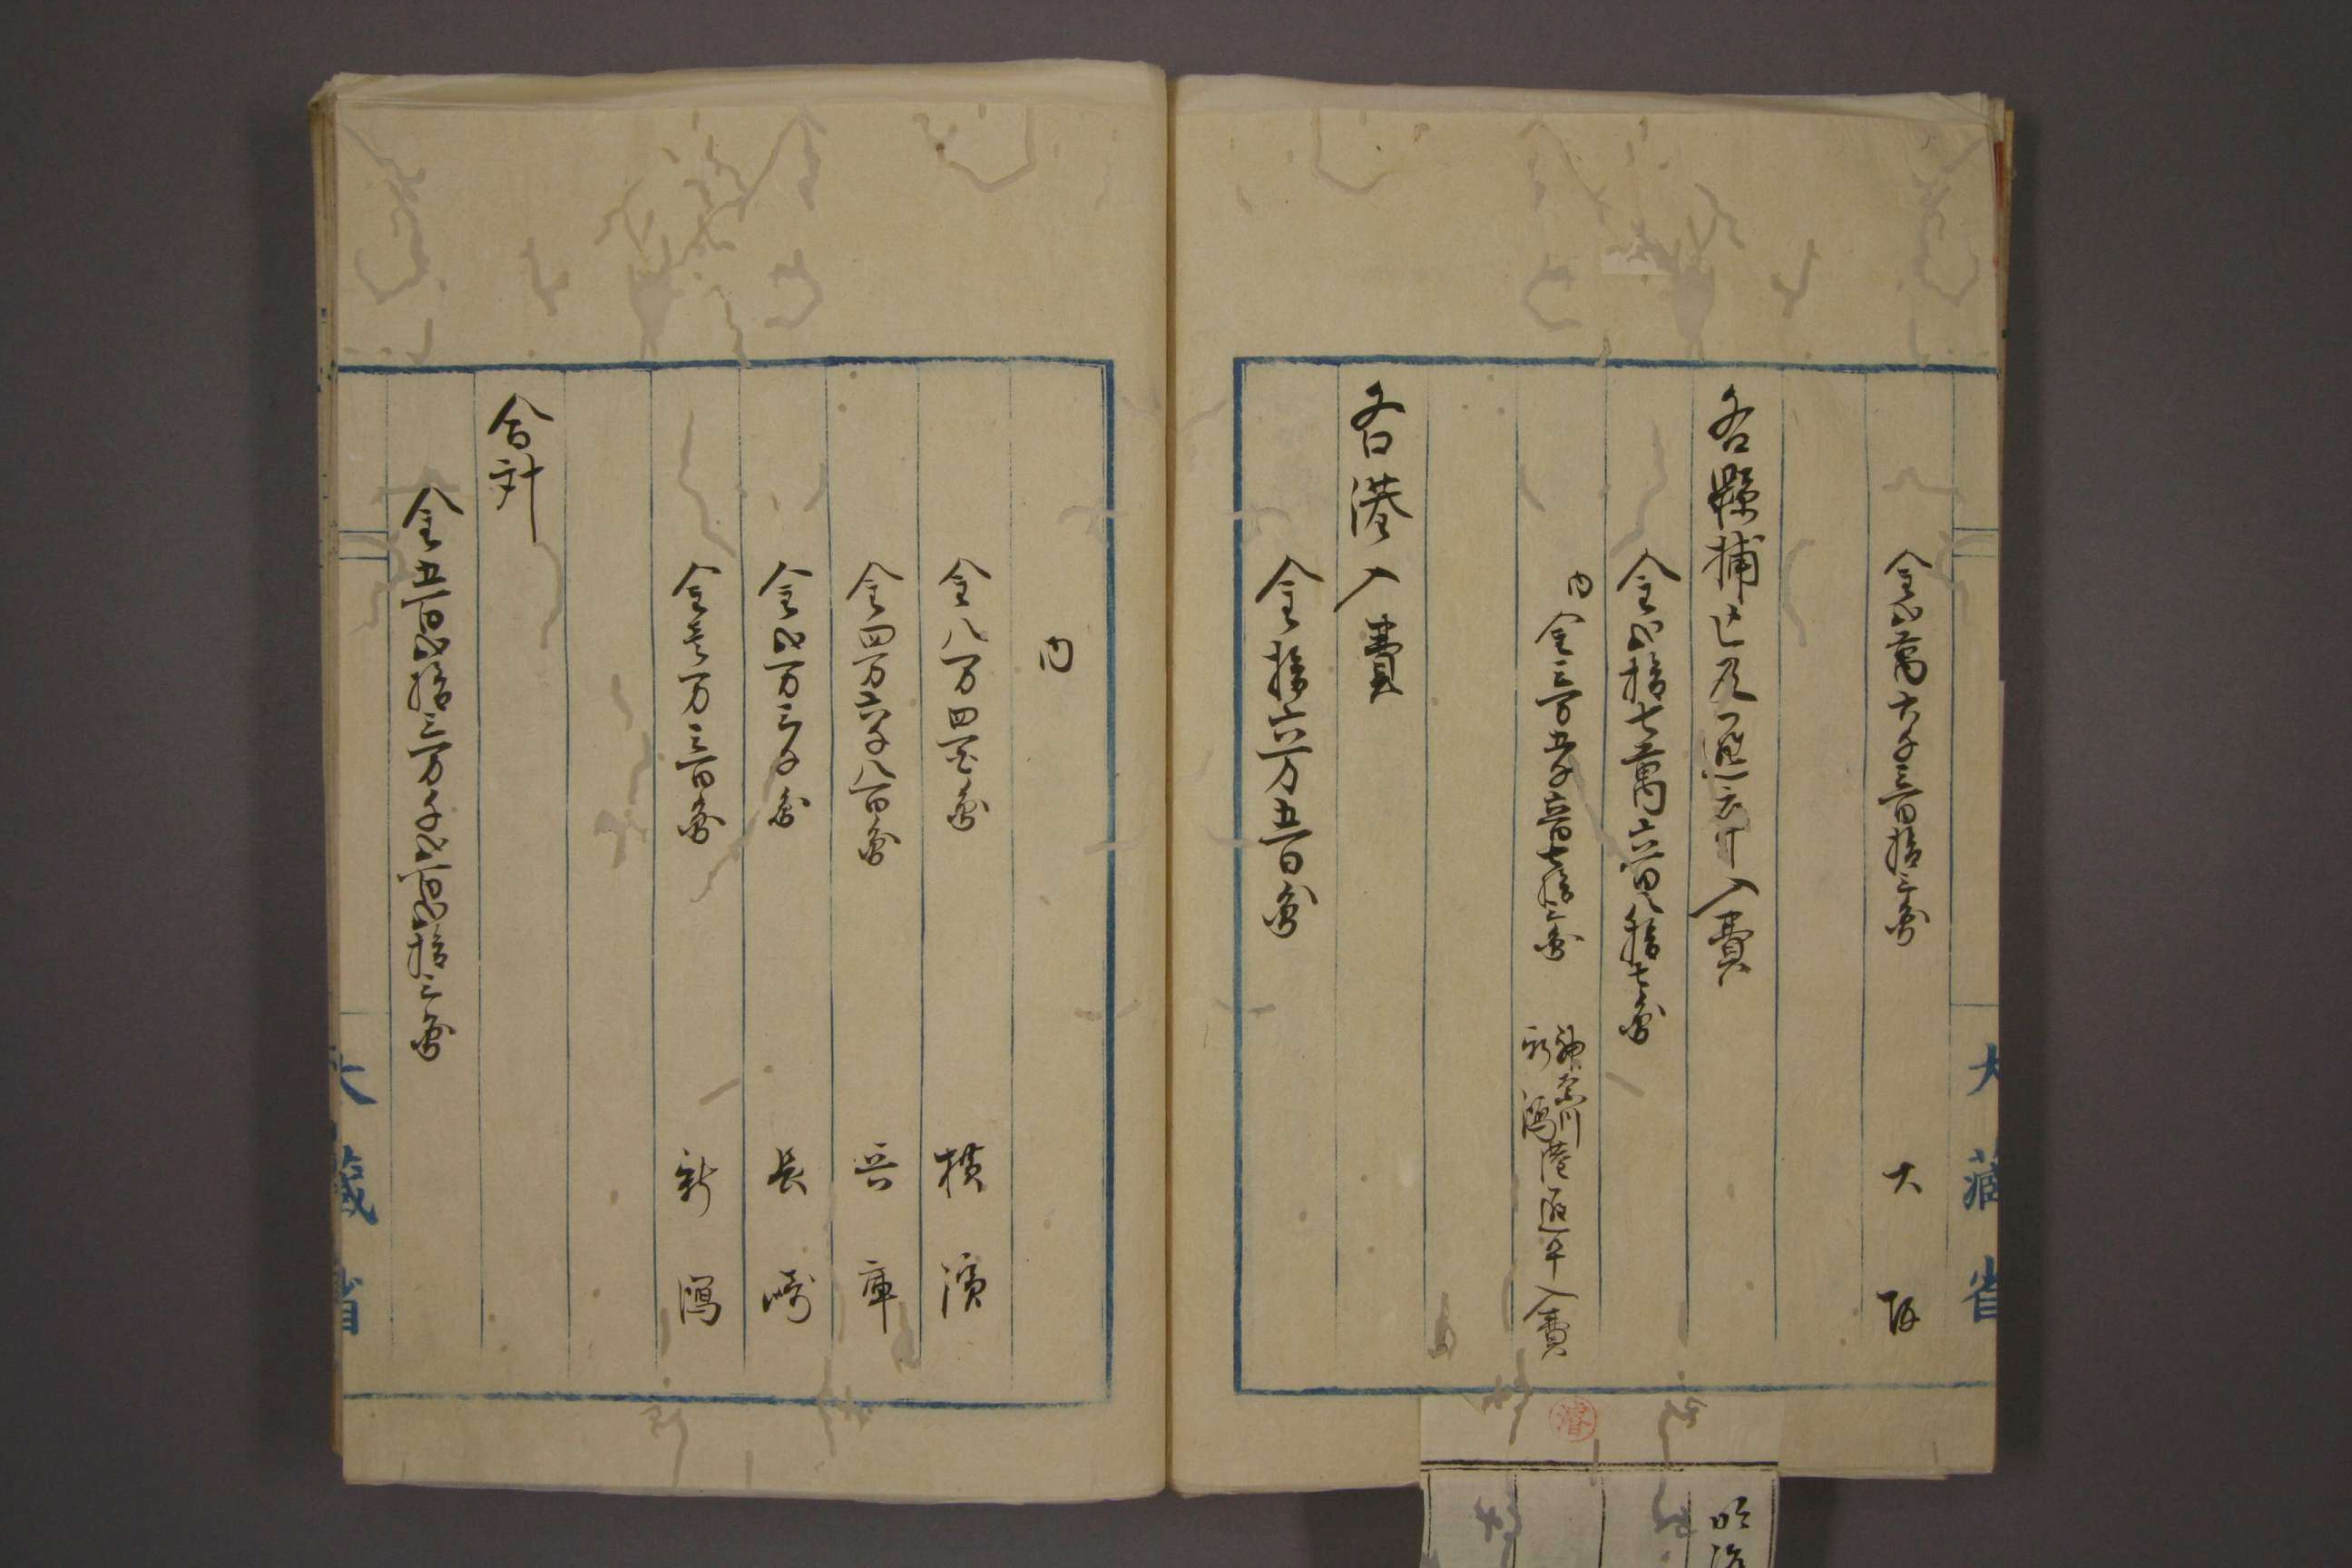 大藏省
金弐萬六千三百拾三両 大阪
各縣捕亡及邏卒入費
金弐拾七萬六百八拾七両
内 金三万五千六百七拾三両 神奈川
新潟港邏卒入費
各港入費
金拾六万五百両
内
金八万四百両 横濱
金四万六千八百両 兵庫
金弐万三千両 長崎
金壱万三百両 新潟
合計
金五百弐拾三万千弐百弐拾三両
大藏省
明治